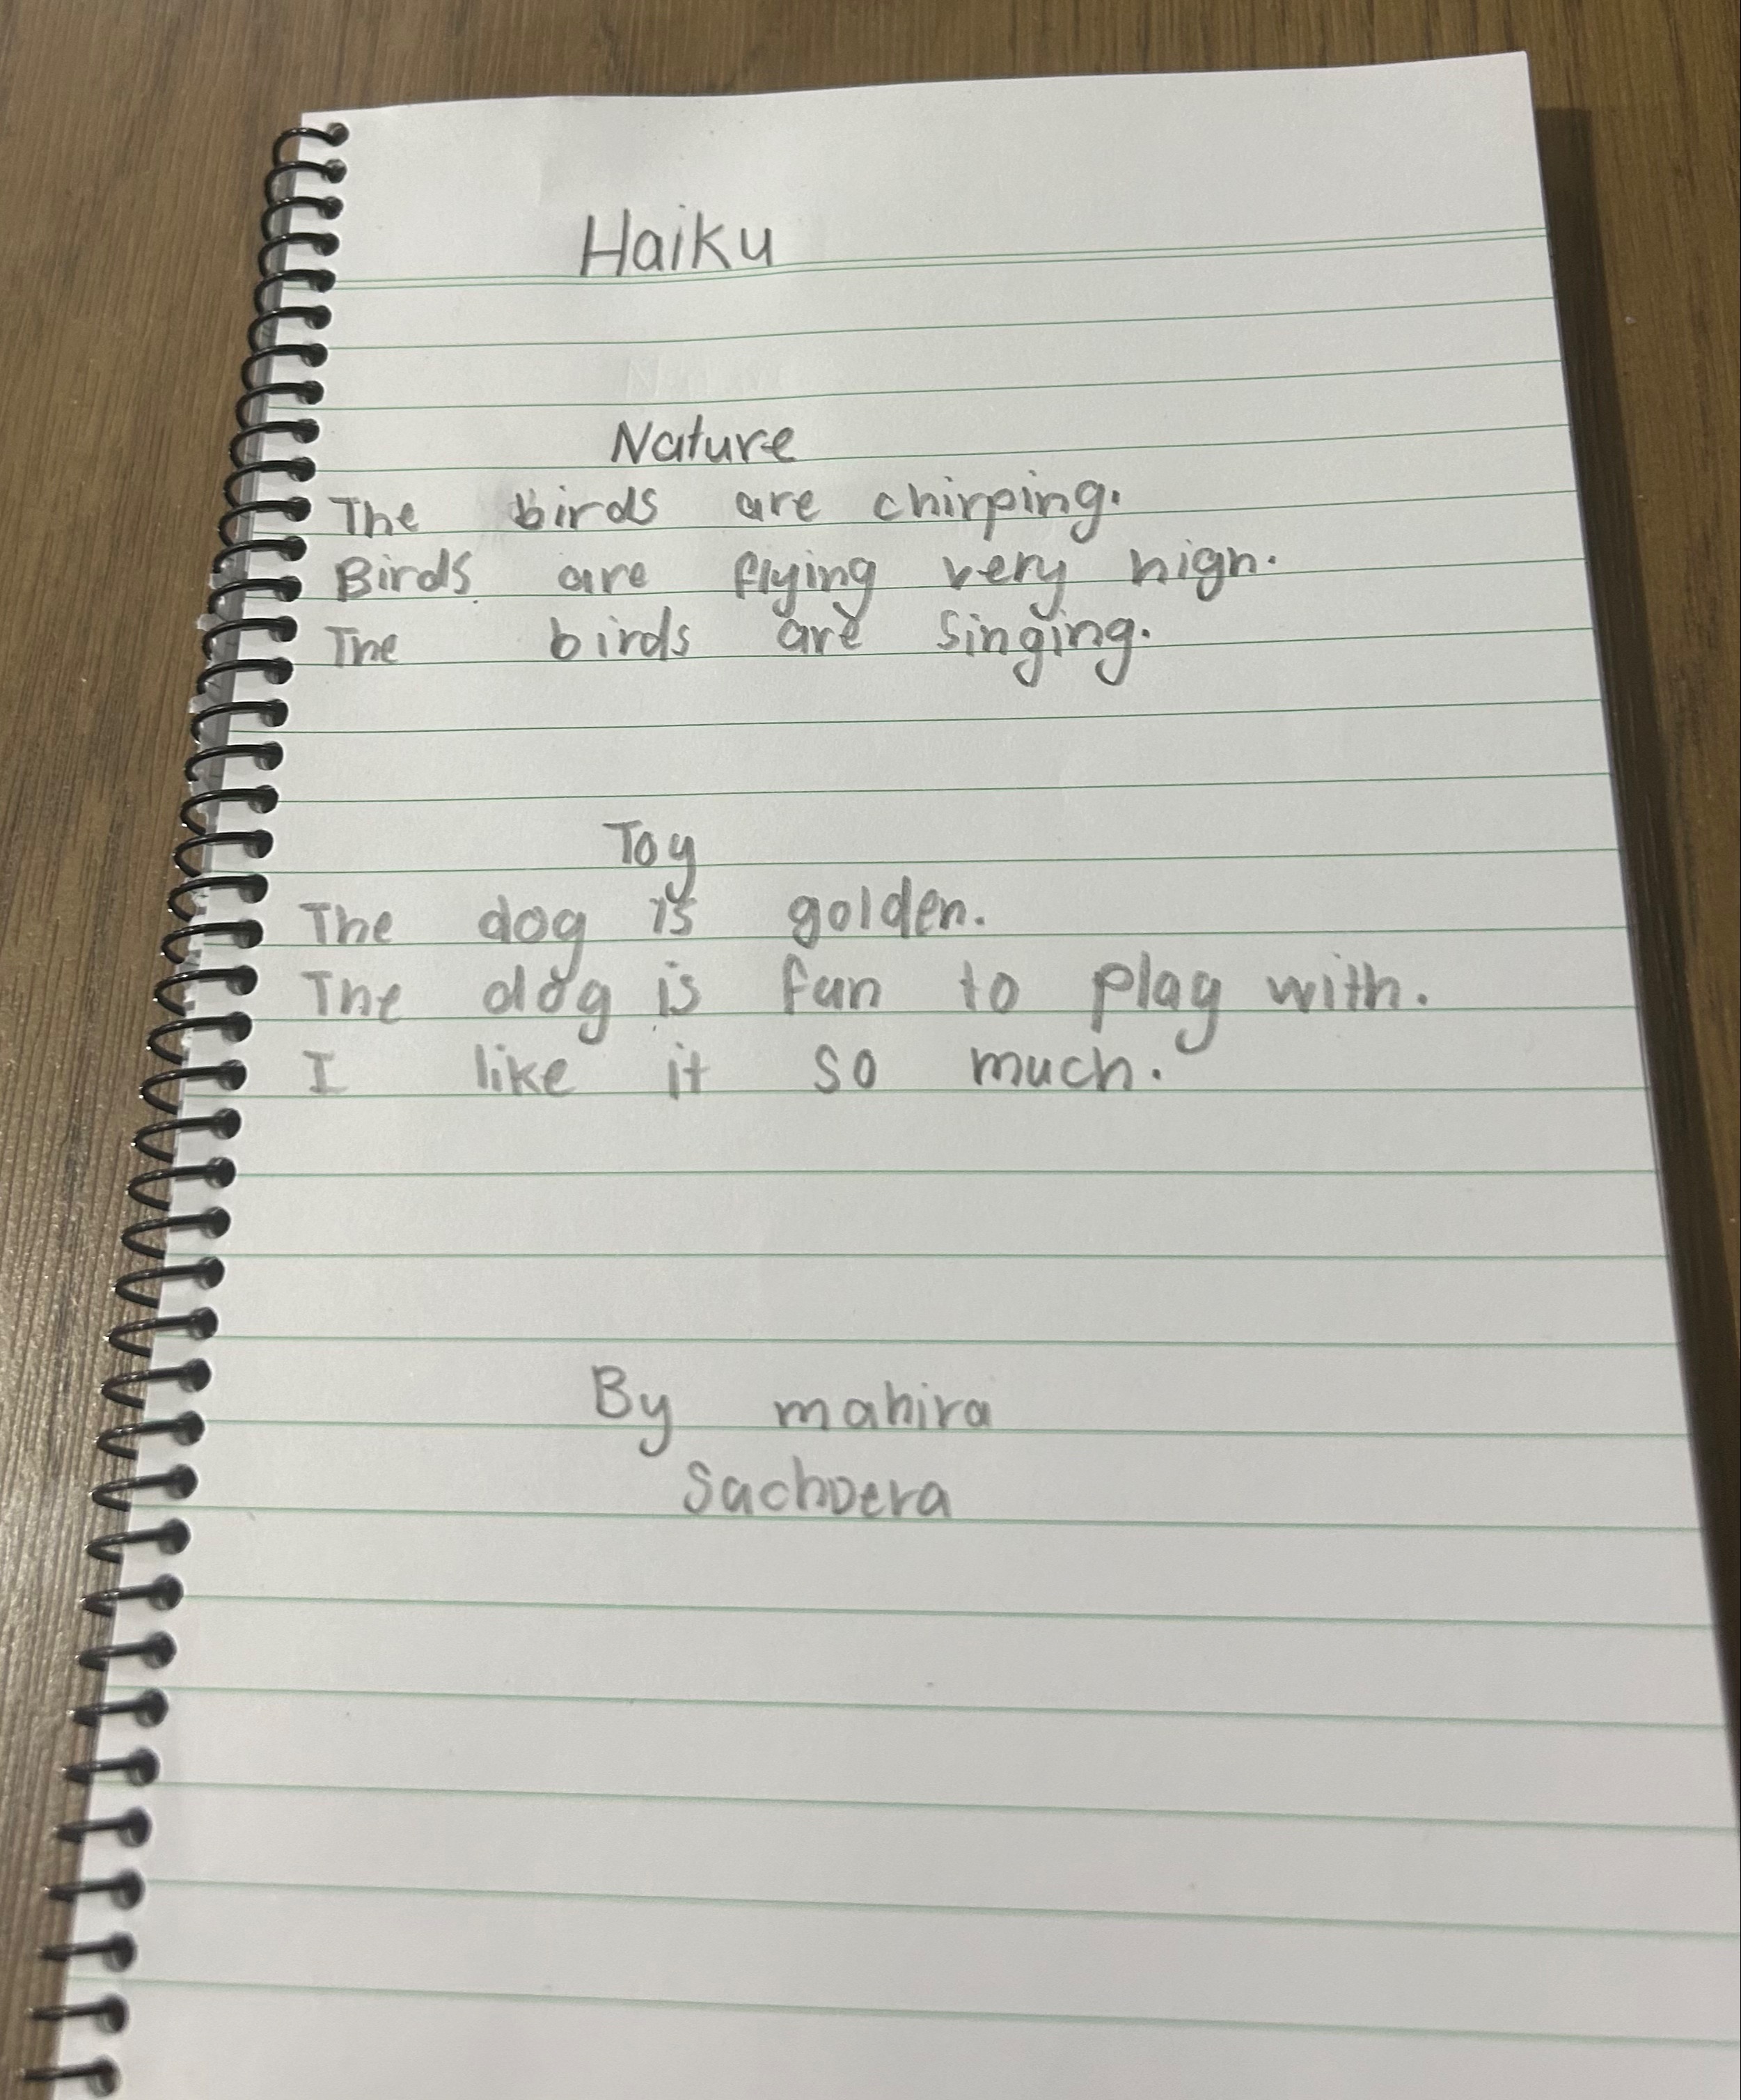 Haiku
Nature
The birds are chirping.
Birds are flying very high.
The birds are singing.
Toy
The dog is golden.
The dog is fun to play with.
I like it so much.
By mahira